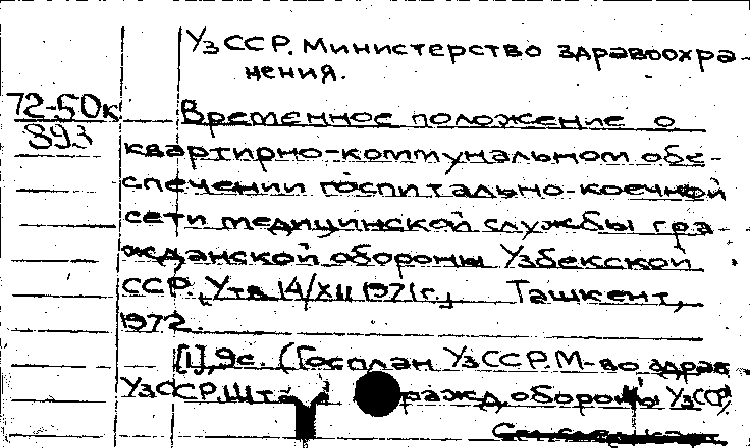 УзССР. Министерство здравоохра-
нения.
72-50к
893
Временное положение о
квартирно-коммунальном обе-
спечении госпитально-коечной
сети медицинской службы гра-
жданской обороны Узбекской
ССР. [Утв. 14/XII 1971г.] Ташкент,
1972.
[1], 9с. (Госплан УзССР. М-во здрав.
УзССР. Штаб обороны УзССР)